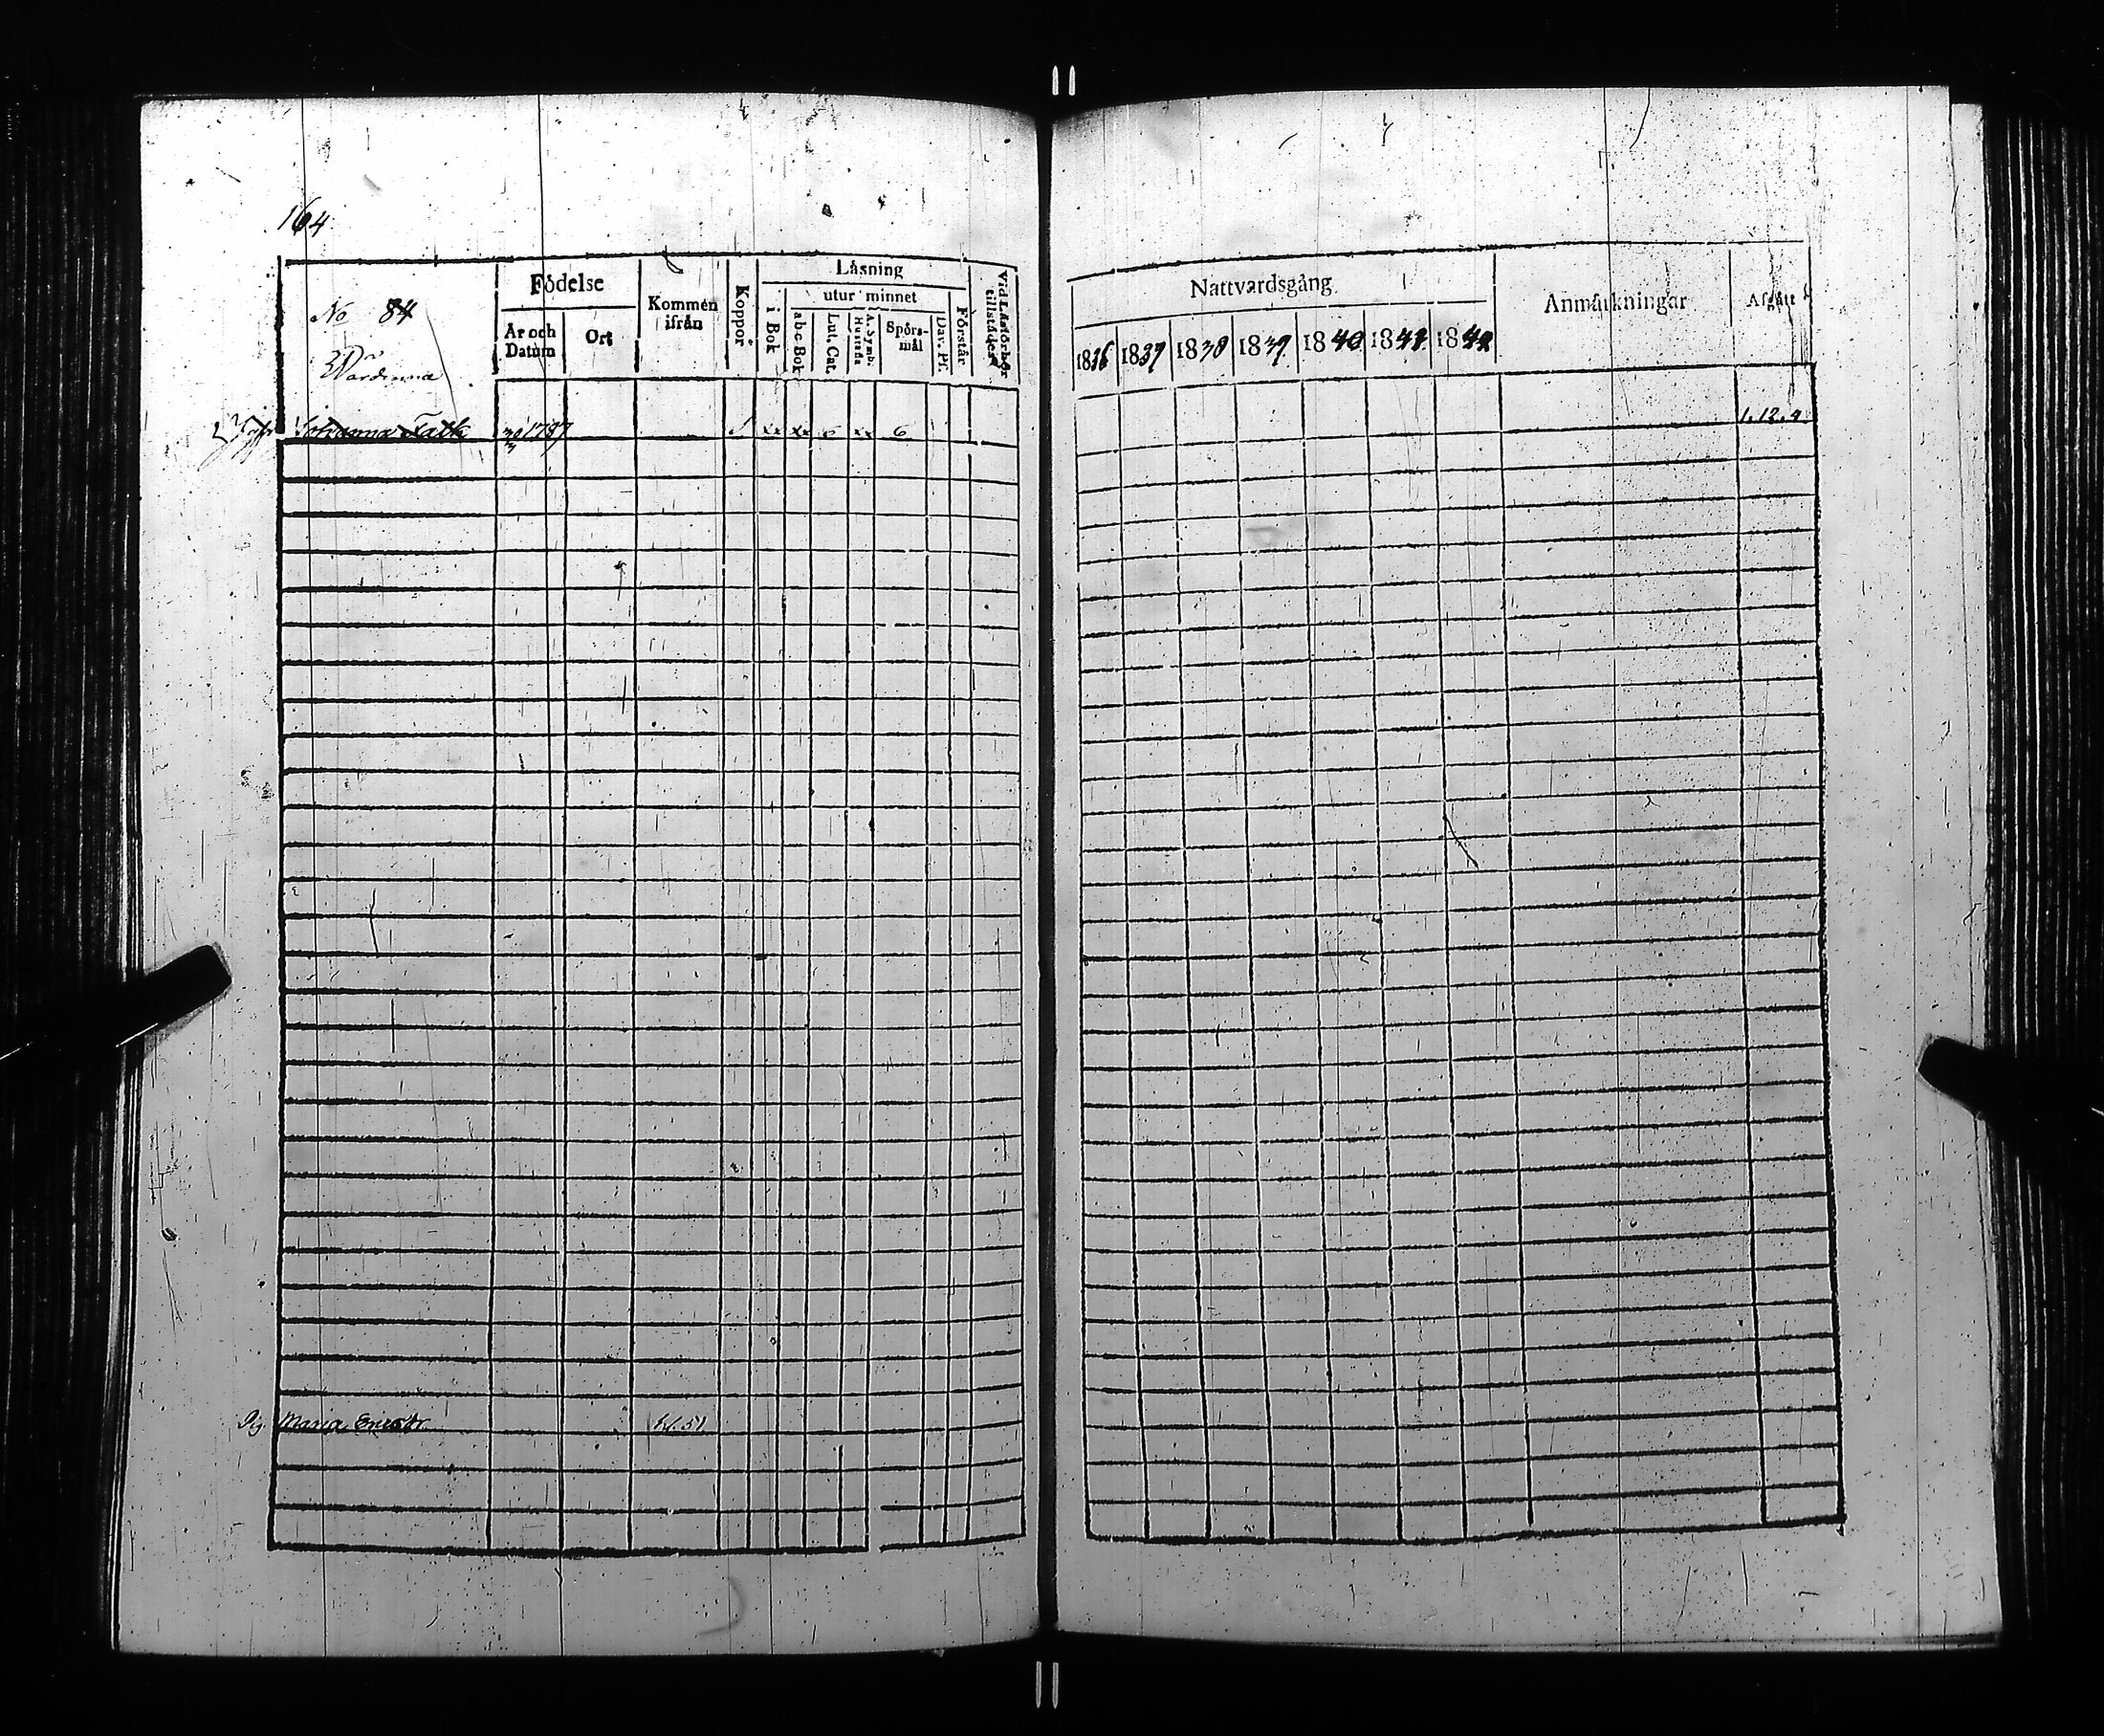 164
No 84
Wårdinna
Födelse
År och Datum
Ort
Kommen ifrån
Koppor
Läsning
i Bok
utur minnet
abc Bok
Lut. Cat.
A. Symb. Hustafla
Spörs-mål
Dav. Ps.
Förstår
Vid Läsförhör tillstädes
Nattvardsgång
1836 1837 1838 1839. 1840. 1841. 1842
Anmärkningar
Afgått
Johanna Falk 30/3 1787 1 xx xx 6 xx 6 1.12.4.
Pig. Maria Ericsdr. 51.